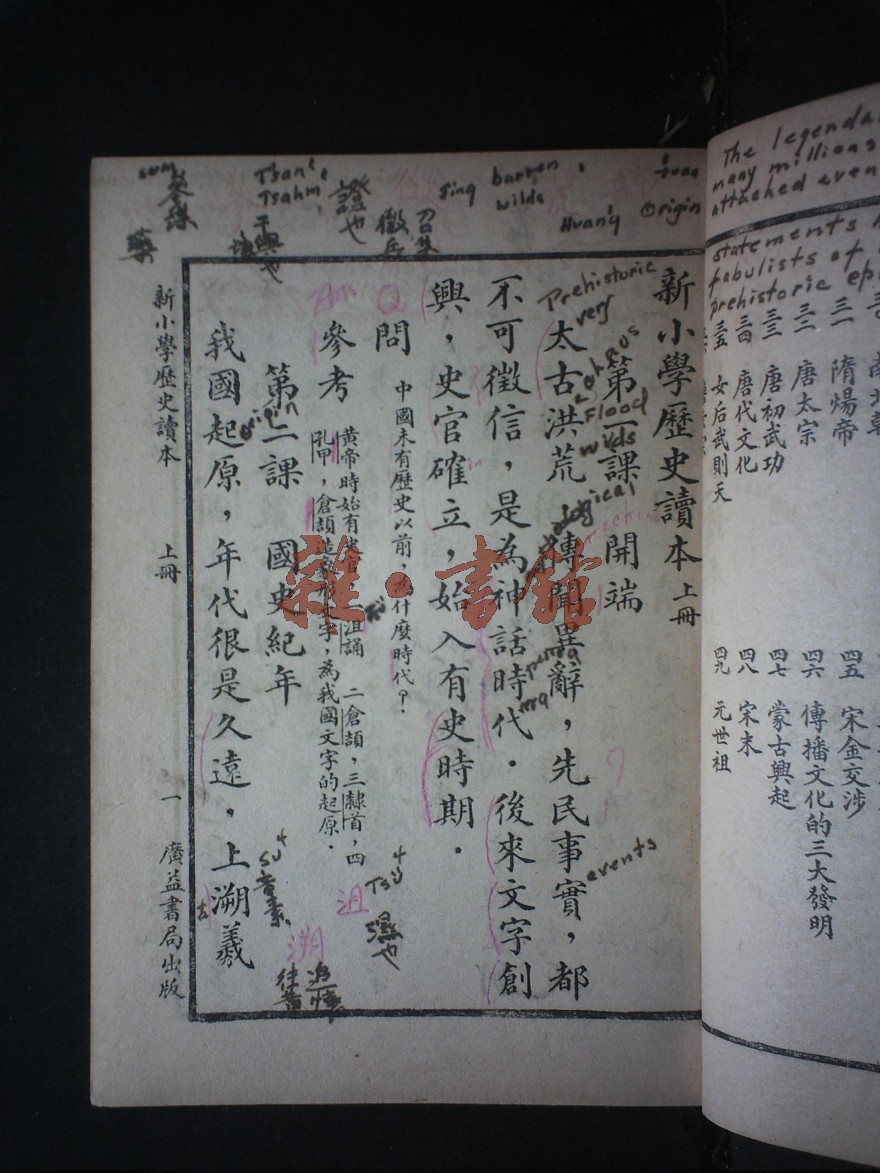 新小學歷史讀本 上冊
第一課 開端
太古洪荒，傳聞異辭，先民事實，都
不可徵信，是為神話時代．後來文字創
興，史官確立，始入有史時期．
問 中國未有歷史以前，為什麼時代？
參考 黃帝時始有史官，一沮誦 二倉頡，三隸首，四
孔甲，倉頡造象形文字，為我國文字的起原．
第二課 國史紀年
我國起原，年代很是久遠，上溯羲
新小學歷史讀本 上冊 一 廣益書局出版
The legenda
many millions
attached even
statements
fabulists of
prehistoric ep
隋煬帝
唐太宗
唐初武功
唐代文化
女后武則天
四五 宋金交涉
四六 傳播文化的三大發明
四七 蒙古興起
四八 宋末
四九 元世祖
Prehistoric
very
Flood
wilds
events
origin
Origin
Huang
barren
wilds
Jing
召集
徵兵
證也
Tsan
Tsahm
沮
溯
濕也
音素
雜·書館